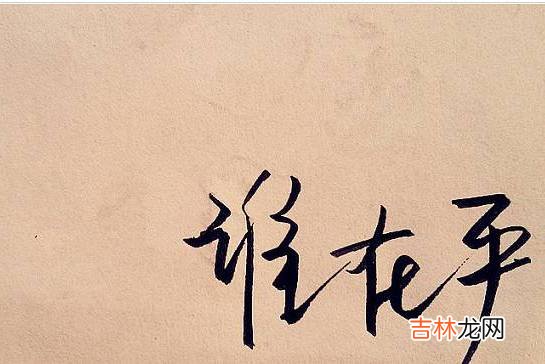 谁在乎
吉林龙网